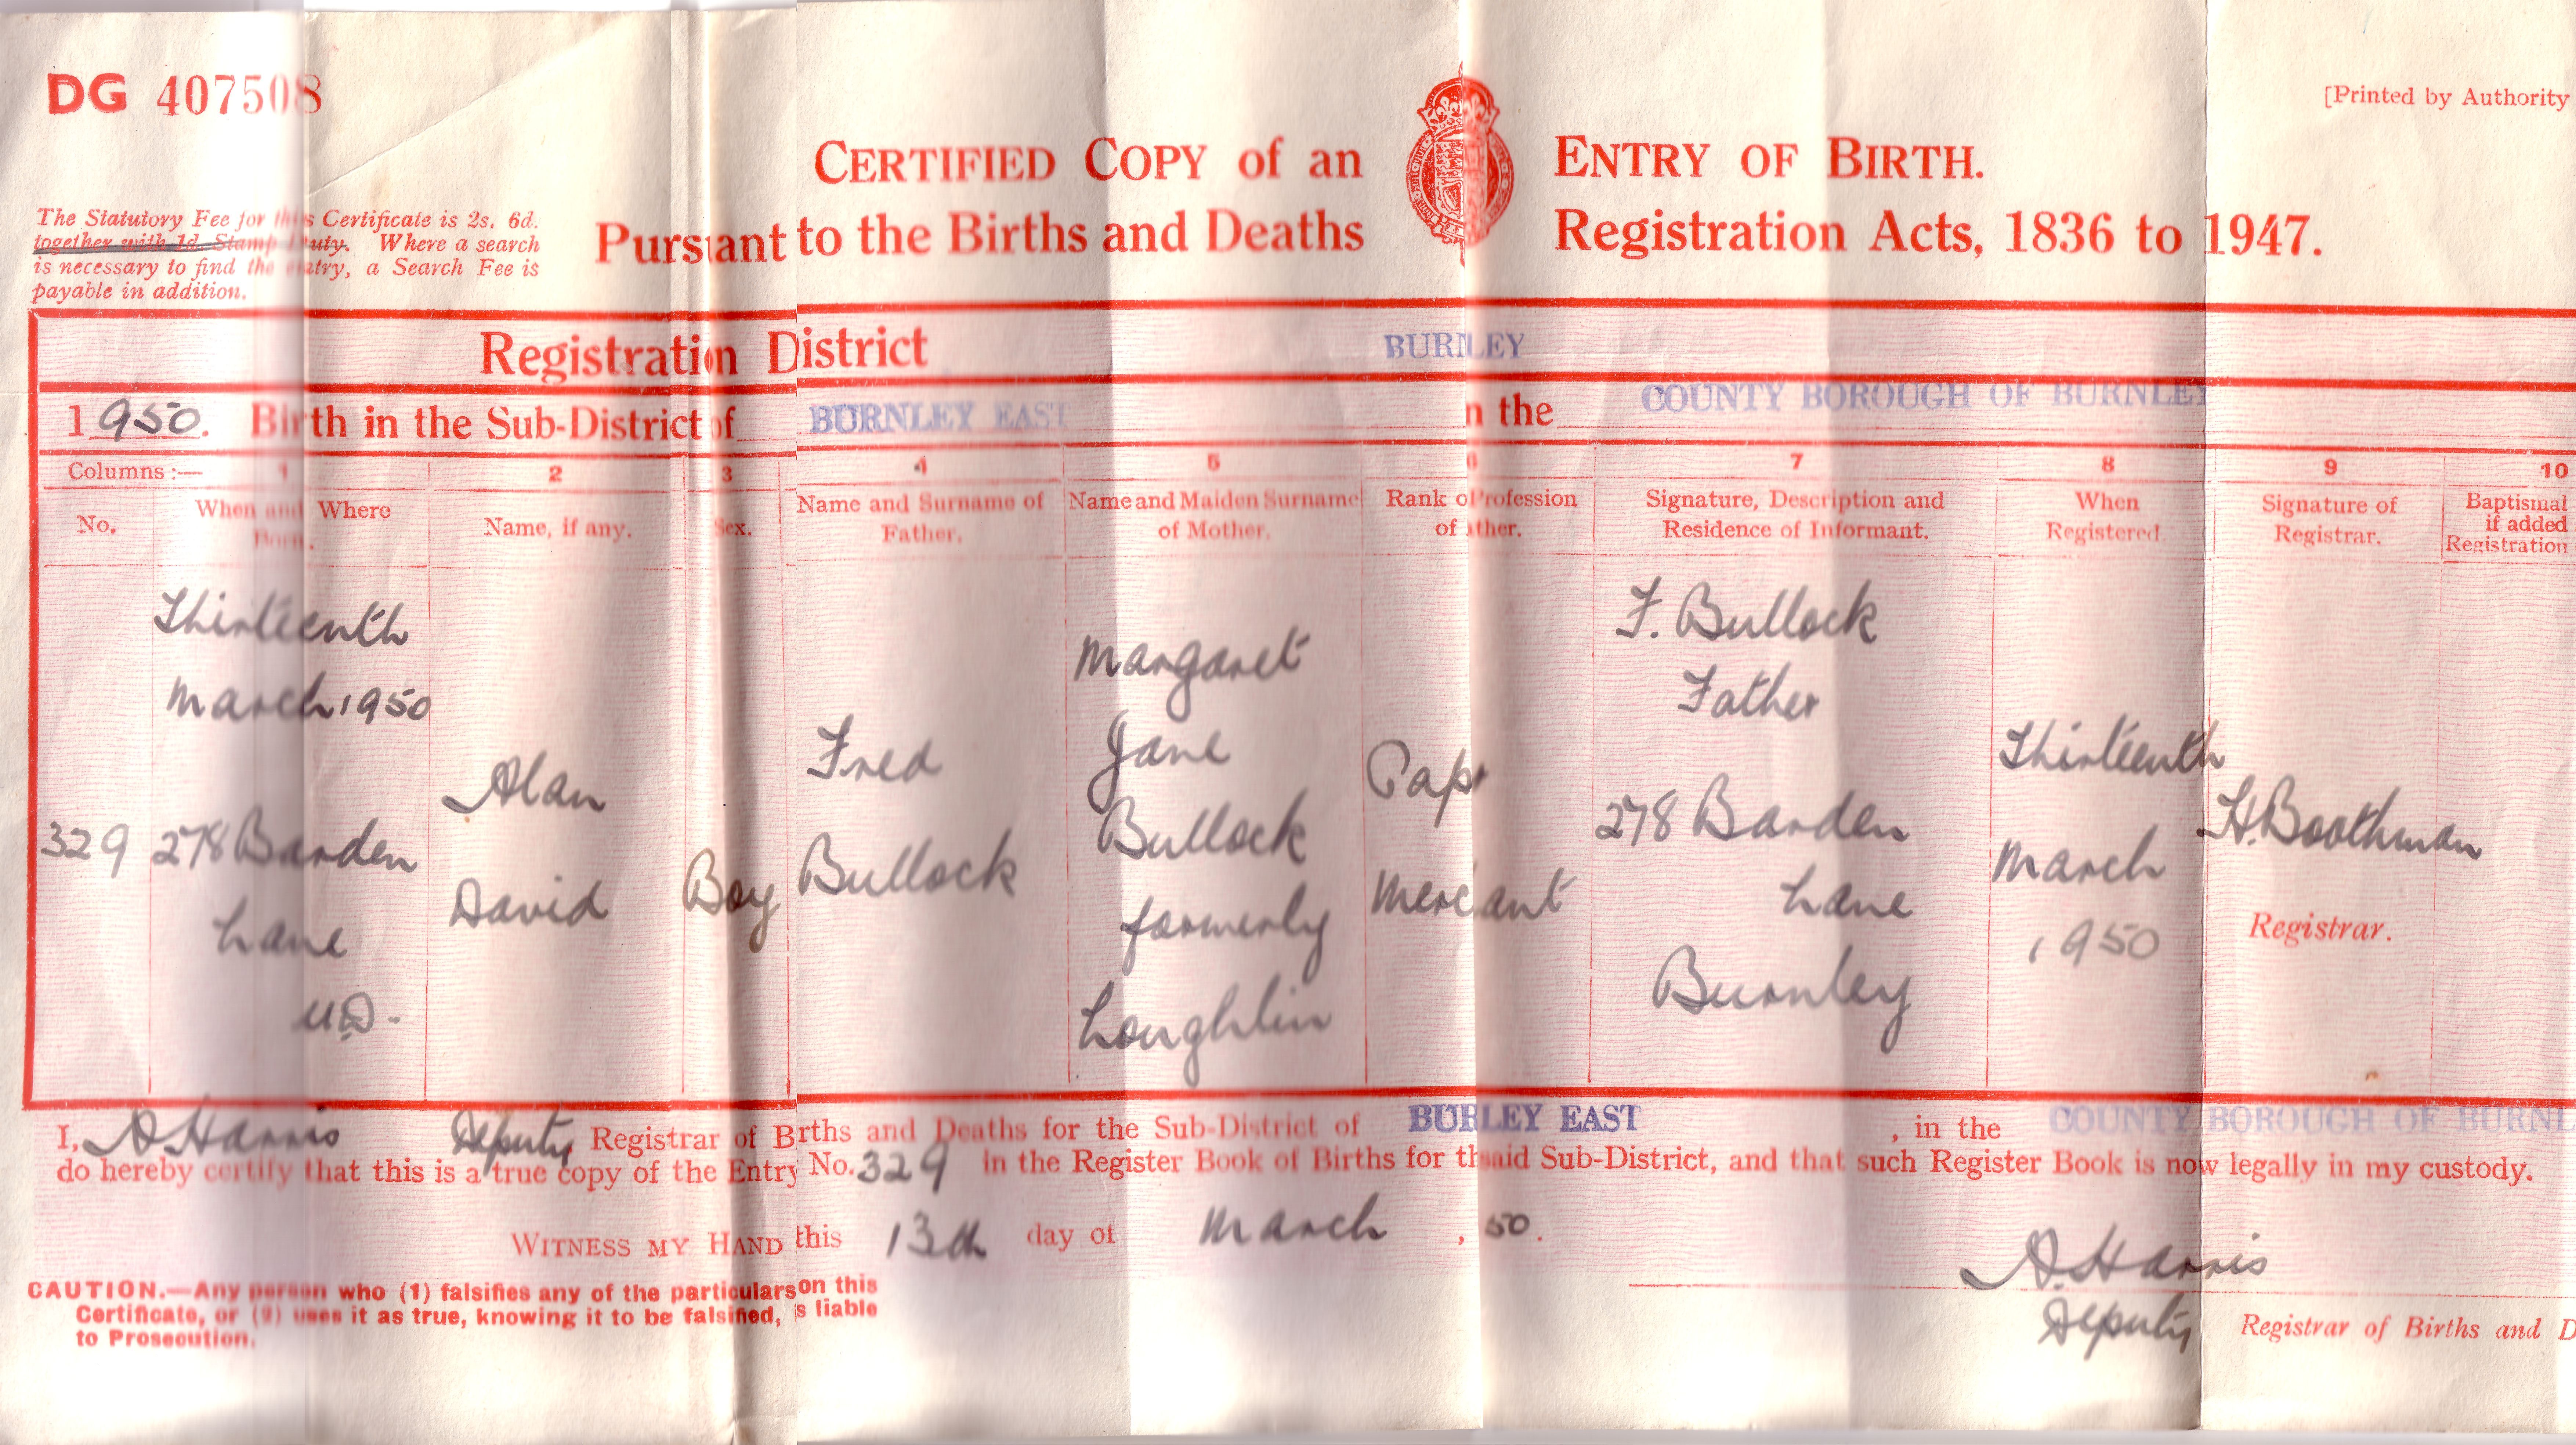 DG 407508
[Printed by Authority
CERTIFIED COPY of an ENTRY OF BIRTH.
Pursuant to the Births and Deaths Registration Acts, 1836 to 1947.
The Statutory Fee for this Certificate is 2s. 6d.
together with 1d. Stamp Duty. Where a search
is necessary to find the entry, a Search Fee is
payable in addition.
Registration District BURNLEY
1950. Birth in the Sub-District of BURNLEY EAST in the COUNTY BOROUGH OF BURNLEY
Columns :— 1 2 3 4 5 6 7 8 9 10
No.
When and Where
Born.
Name, if any.
Sex.
Name and Surname of
Father.
Name and Maiden Surname
of Mother.
Rank or Profession
of Father.
Signature, Description and
Residence of Informant.
When
Registered
Signature of
Registrar.
Baptismal
if added
Registration
329
Thirteenth
March 1950
278 Barden
Lane
U.D.
Alan
David
Boy
Fred
Bullock
Margaret
Jane
Bullock
formerly
Loughlin
Pap
Merchant
F. Bullock
Father
278 Barden
Lane
Burnley
Thirteenth
March
1950
H. Boothman
Registrar.
I, A Harris Deputy Registrar of Births and Deaths for the Sub-District of BURNLEY EAST, in the COUNTY BOROUGH OF BURNL
do hereby certify that this is a true copy of the Entry No. 329 in the Register Book of Births for the said Sub-District, and that such Register Book is now legally in my custody.
WITNESS MY HAND this 13th day of March, 50.
CAUTION.—Any person who (1) falsifies any of the particulars on this
Certificate, or (2) uses it as true, knowing it to be falsified, is liable
to Prosecution.
A. Harris
Deputy Registrar of Births and D